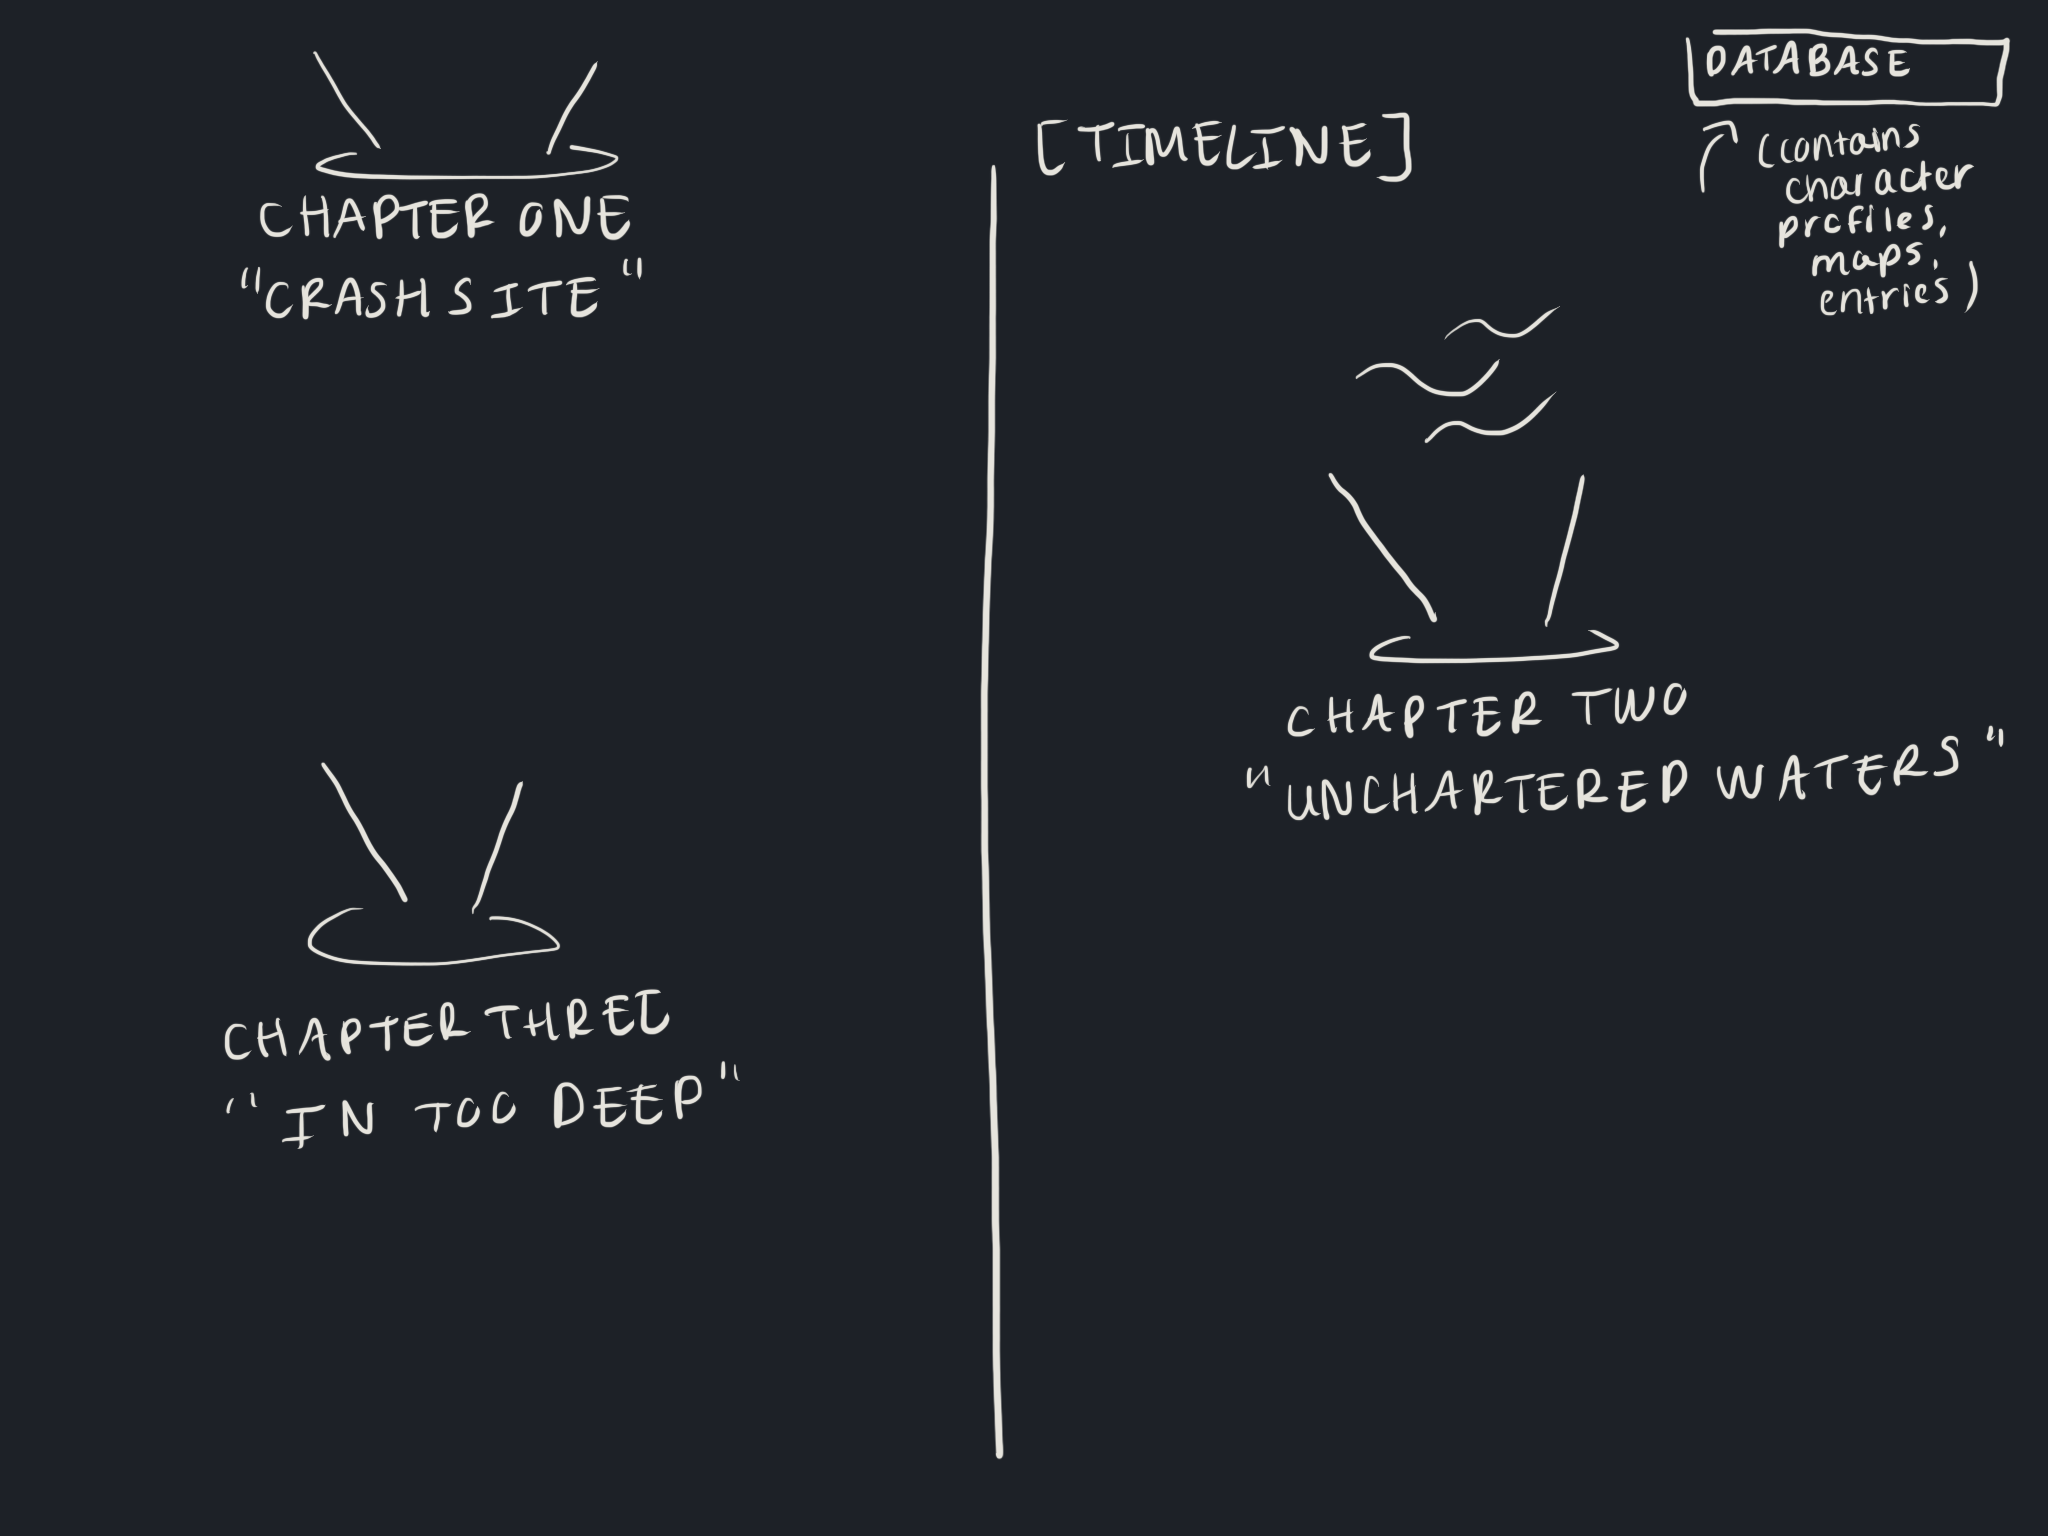 DATABASE
[TIMELINE]
(contains
character
profiles,
maps,
entries)
CHAPTER ONE
"CRASH SITE"
CHAPTER TWO
"UNCHARTERED WATERS"
CHAPTER THREE
"IN TOO DEEP"